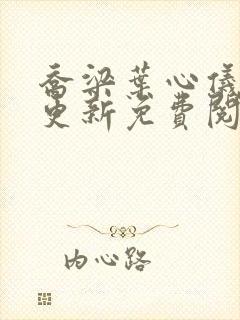 喬梁葉心儀
更新免費閱
内心路